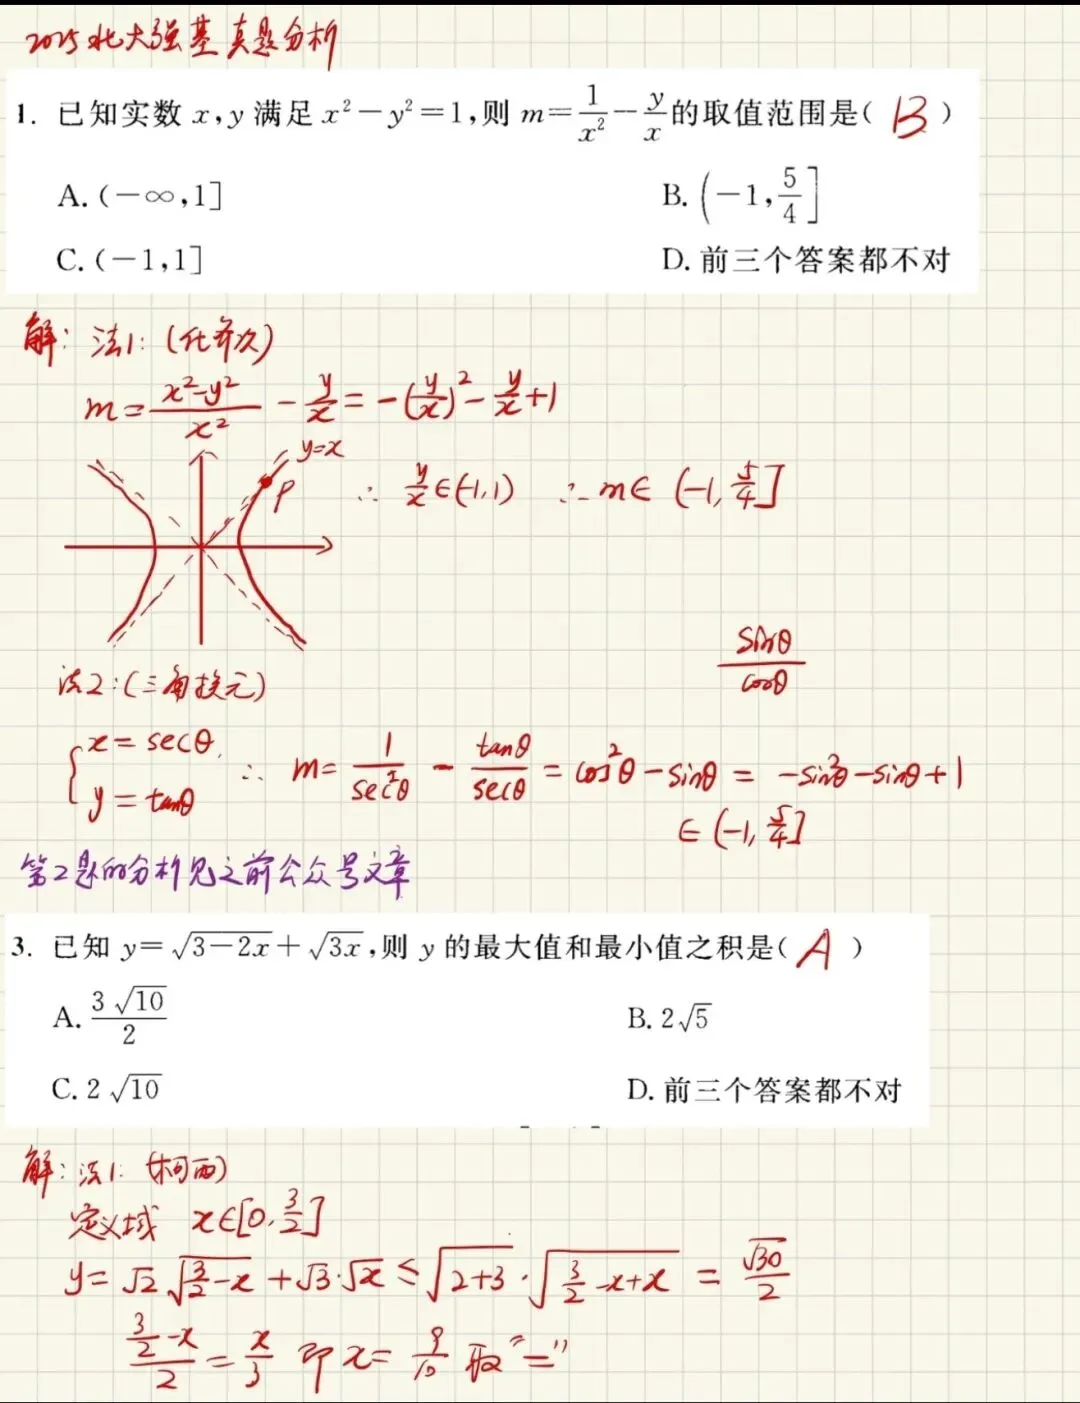 2025北大强基真题分析
1. 已知实数 x,y 满足 x²-y²=1,则 m=1/x²-y/x的取值范围是( B )
A. (-∞,1]
B. (-1,5/4]
C. (-1,1]
D. 前三个答案都不对
解: 法1: (化齐次)
m=(x²-y²)/x² - y/x = -(y/x)² - y/x +1
y=x
P
∴ y/x∈(-1,1) ∴ m∈ (-1, 5/4]
sinθ/cosθ
法2:(三角换元)
{x= secθ, y= tanθ ∴ m= 1/sec²θ - tanθ/secθ = cos²θ - sinθ = -sin²θ-sinθ+1
∈ (-1, 5/4]
第2题的分析见之前公众号文章
3. 已知 y=√(3-2x)+√(3x),则 y 的最大值和最小值之积是( A )
A. 3√10/2
B. 2√5
C. 2√10
D. 前三个答案都不对
解: 法1: (柯西)
定义域 x∈[0, 3/2]
y= √2 √(3/2-x) +√3·√x ≤ √(2+3) · √(3/2-x+x) = √30/2
(3/2-x)/2 = x/3 即 x= 9/10 取"="